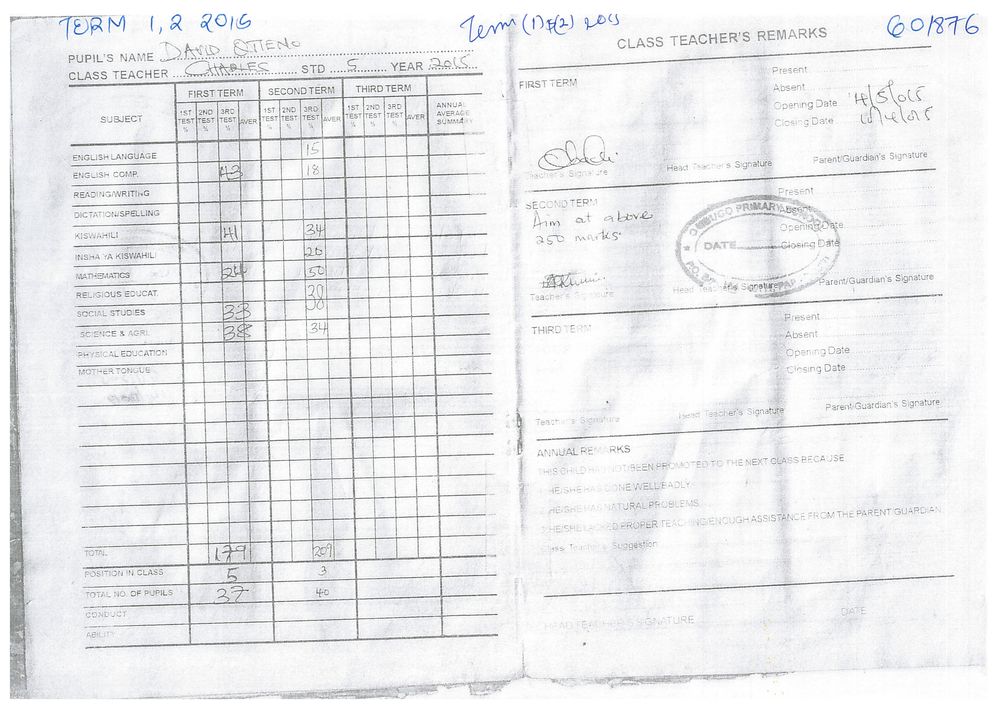 TERM 1, 2 2015
Term (1) & (2) 2015
60/876
PUPIL'S NAME DAVID OTIENO
CLASS TEACHER CHARLES STD 5 YEAR 2015
FIRST TERM SECOND TERM THIRD TERM
SUBJECT 1ST TEST % 2ND TEST % 3RD TEST % AVER 1ST TEST % 2ND TEST % 3RD TEST % AVER 1ST TEST % 2ND TEST % 3RD TEST % AVER ANNUAL AVERAGE SUMMARY
ENGLISH LANGUAGE 15
ENGLISH COMP. 43 18
READING/WRITING
DICTATION/SPELLING
KISWAHILI 41 34
INSHA YA KISWAHILI 20
MATHEMATICS 24 50
RELIGIOUS EDUCAT.
SOCIAL STUDIES 33
SCIENCE & AGRI. 38 34
PHYSICAL EDUCATION
MOTHER TONGUE
TOTAL 179 209
POSITION IN CLASS 5 3
TOTAL NO. OF PUPILS 37 40
CONDUCT
ABILITY
CLASS TEACHER'S REMARKS
FIRST TERM
Present
Absent
Opening Date 4/5/015
Closing Date
Teacher's Signature Head Teacher's Signature Parent/Guardian's Signature
SECOND TERM
Aim at above
250 marks.
Present
Absent
Opening Date
Closing Date
PRIMARY
DATE
Teacher's Signature Head Teacher's Signature Parent/Guardian's Signature
THIRD TERM
Present
Absent
Opening Date
Closing Date
Teacher's Signature Head Teacher's Signature Parent/Guardian's Signature
ANNUAL REMARKS
THIS CHILD HAS NOT/BEEN PROMOTED TO THE NEXT CLASS BECAUSE
HE/SHE HAS DONE WELL/BADLY.
HE/SHE HAS NATURAL PROBLEMS.
HE/SHE LACKED PROPER TEACHING/ENOUGH ASSISTANCE FROM THE PARENT/GUARDIAN.
Class Teacher's Suggestion
HEAD TEACHER'S SIGNATURE DATE